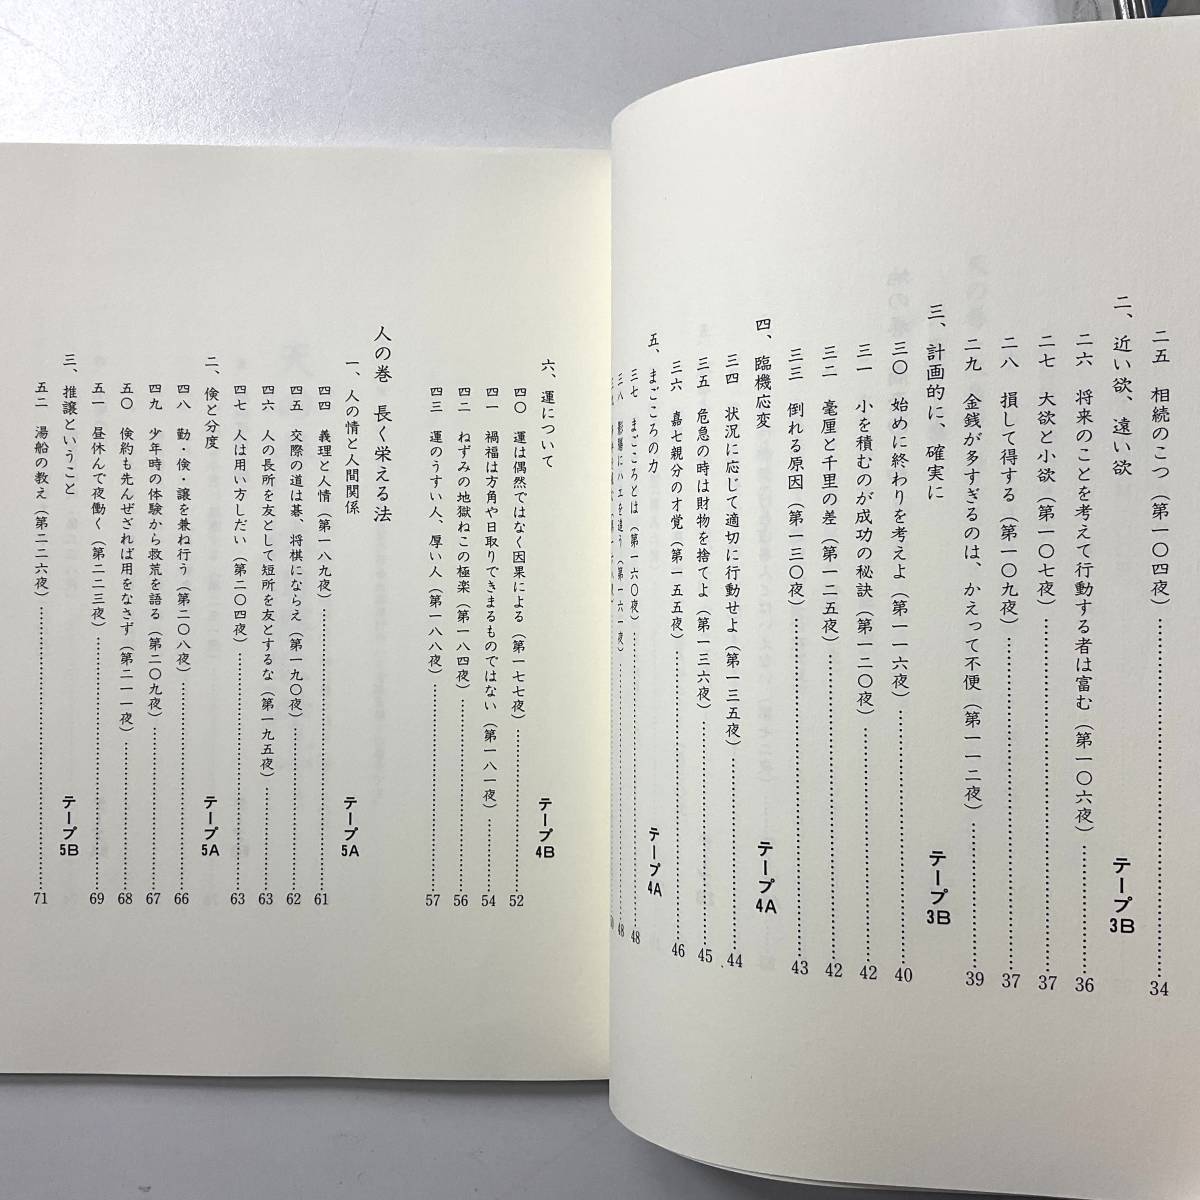 二五　相続のこつ（第一〇四夜）……34
二、近い欲、遠い欲　テープ3B
二六　将来のことを考えて行動する者は富む（第一〇六夜）……36
二七　大欲と小欲（第一〇七夜）……37
二八　損して得する（第一〇九夜）……37
二九　金銭が多すぎるのは、かえって不便（第一一二夜）……39
三、計画的に、確実に　テープ3B
三〇　始めに終わりを考えよ（第一一六夜）……40
三一　小を積むのが成功の秘訣（第一二〇夜）……42
三二　毫厘と千里の差（第一二五夜）……42
三三　倒れる原因（第一三〇夜）……43
四、臨機応変　テープ4A
三四　状況に応じて適切に行動せよ（第一三五夜）……44
三五　危急の時は財物を捨てよ（第一三六夜）……45
三六　嘉七親分の才覚（第一五五夜）……46
五、まごころの力　テープ4A
三七　まごころとは（第一六〇夜）……48
三八　にハエを追う（第一六一夜）……48
六、運について　テープ4B
四〇　運は偶然ではなく因果による（第一七七夜）……52
四一　禍福は方角や日取りできまるものではない（第一八一夜）……54
四二　ねずみの地獄ねこの極楽（第一八四夜）……56
四三　運のうすい人、厚い人（第一八八夜）……57
人の巻　長く栄える法
一、人の情と人間関係　テープ5A
四四　義理と人情（第一八九夜）……61
四五　交際の道は碁、将棋にならえ（第一九〇夜）……62
四六　人の長所を友として短所を友とするな（第一九五夜）……63
四七　人は用い方しだい（第二〇四夜）……63
二、倹と分度　テープ5A
四八　勤・倹・譲を兼ね行う（第二〇八夜）……66
四九　少年時の体験から救荒を語る（第二〇九夜）……67
五〇　倹約も先んぜざれば用をなさず（第二一一夜）……68
五一　昼休んで夜働く（第二二三夜）……69
三、推譲ということ　テープ5B
五二　湯船の教え（第二二六夜）……71